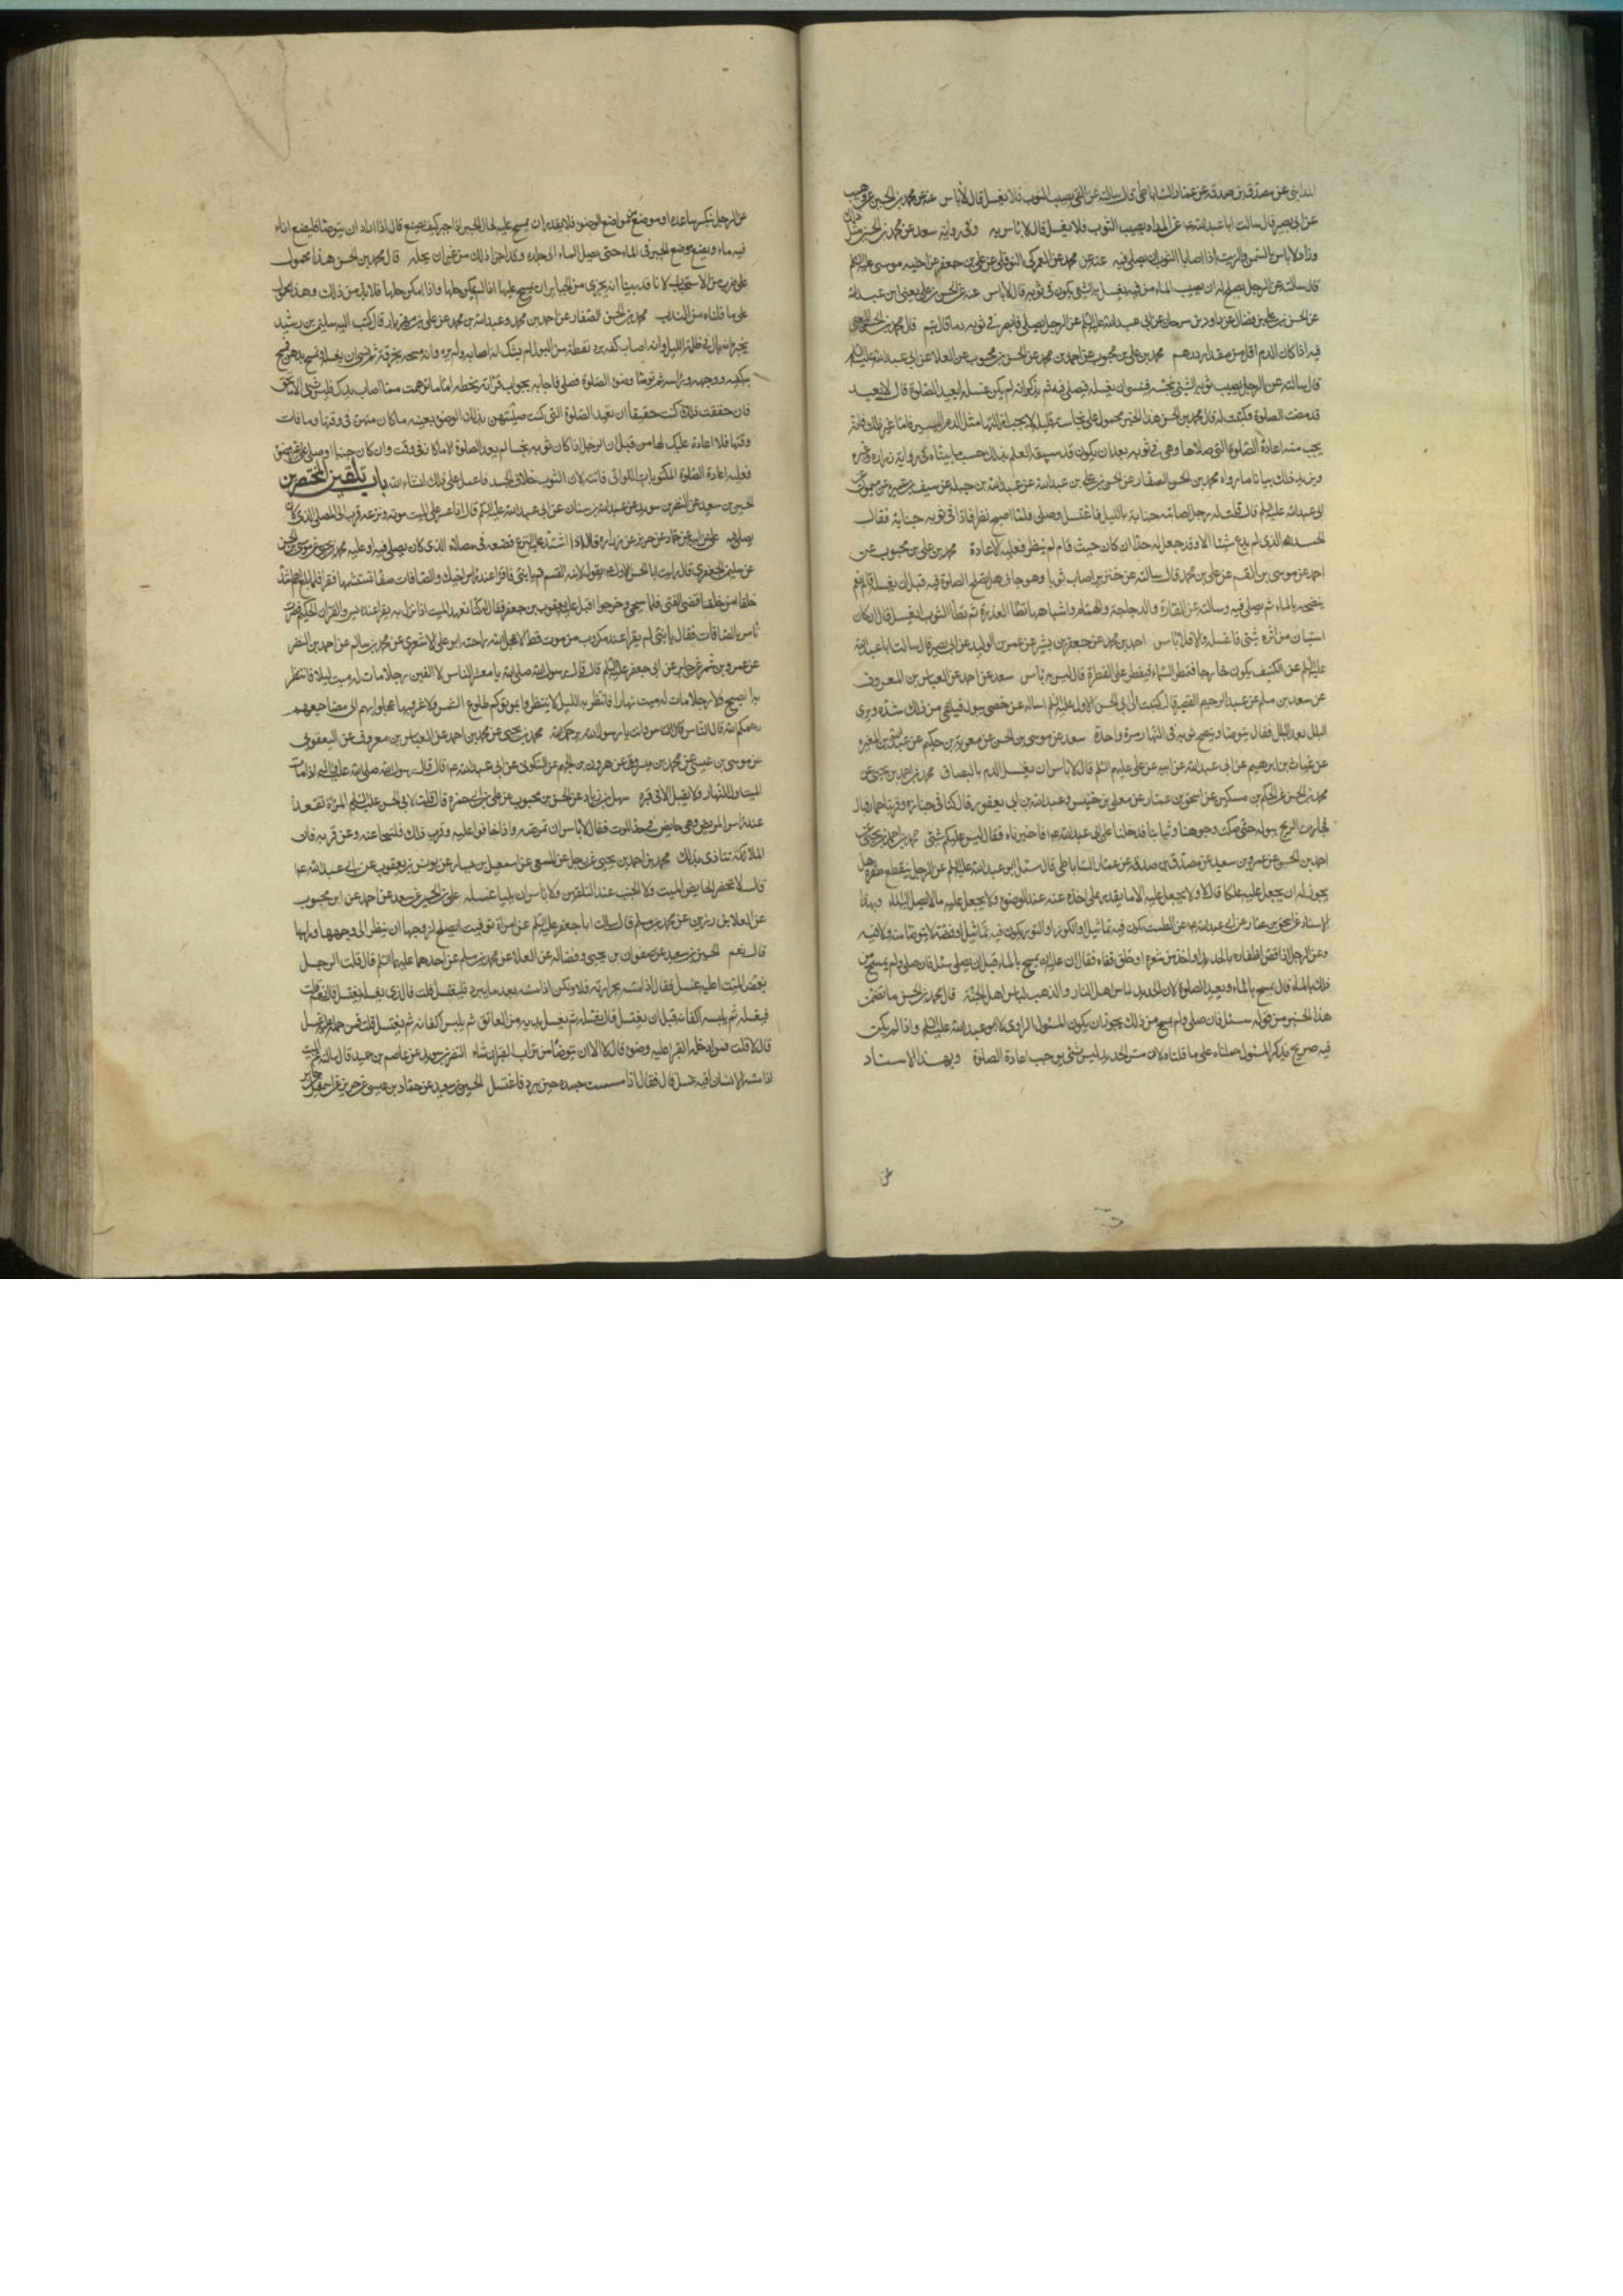 المدايني عن مصدق بن صدقة عن عمار الساباطي قال سالته عن القي يصيب الثوب فلا يغسل قال لا باس عنه عن محمد بن الحسين عن وهيب
عن ابي بصير قال سالت ابا عبد الله عن المداد يصيب الثوب فلا يغسل قال لا باس به وفي رواية سعد عن محمد بن الحسين
ولا باس بالسمن والزيت اذا اصابا الثوب ان يصلي فيه عنه عن محمد عن العمركي النوفلي عن علي بن جعفر عن اخيه موسى عليه السلم
قال سالته عن الرجل يصلح له ان يصيب الماء من فيه يغسل به الشئ يكون في ثوبه قال لا باس عنه عن الحسن بن علي يعني ابن عبد الله
عن الحسن بن علي بن فضال عن داود بن سرحان عن ابي عبد الله عليه السلم عن الرجل يصلي فابصر في ثوبه دما قال يتم قال محمد بن الحسن
فيه اذا كان الدم اقل من مقدار درهم محمد بن علي بن محبوب عن احمد بن محمد عن الحسن بن محبوب عن العلا عن ابي عبد الله عليه السلم
قال سالته عن الرجل يصيب ثوبه الشئ ينجسه فينسى ان يغسله فيصلي فيه ثم يذكر انه لم يكن غسله ايعيد الصلوة قال لا يعيد
قد مضت الصلوة وكتبت له قال محمد بن الحسن هذا الخبر محمول على نجاسة قليلة لا يجب ازالتها مثل الدم اليسير فاما غير ذلك فانه
يجب منه اعادة الصلوة التي صلاها وهي في ثوبه بعد ان يكون قد سبقه العلم بذلك حسب ما بيناه في رواية زرارة وغيره
ويزيد ذلك بيانا ما رواه محمد بن الحسن الصفار عن الحسن بن علي بن عبد الله عن عبد الله بن جبلة عن سيف عن ميمون عن
ابي عبد الله عليه السلم قال قلت له رجل اصابته جنابة بالليل فاغتسل وصلى فلما اصبح نظر فاذا في ثوبه جنابة فقال
الحمد لله الذي لم يدع شيئا الا وقد جعل له حدا ان كان حيث قام لم ينظر فعليه الاعادة محمد بن علي بن محبوب عن
احمد عن موسى بن القسم عن علي بن محمد قال سالته عن خنزير اصاب ثوبا وهو جاف هل تصلح الصلوة فيه قبل ان يغسله قال نعم
ينضحه بالماء ثم يصلي فيه وسالته عن الفارة والدجاجة والحمام واشباهها تطا العذرة ثم تطا الثوب ايغسل قال ان كان
استبان من اثره شئ فاغسله والا فلا باس احمد بن محمد عن جعفر بن بشير عن عمر بن الوليد عن ابي بصير قال سالت ابا عبد الله
عليه السلم عن الكنيف يكون خارجا فتمطر السماء فيقطر علي القطرة قال ليس به باس سعد عن احمد عن العباس بن المعروف
عن سعدان بن مسلم عن عبد الرحيم القصير قال كتبت الى ابي الحسن الاول عليه السلم اساله عن خصي يبول فيلقى من ذلك شدة ويرى
البلل بعد البلل فقال يتوضا وينضح ثوبه في النهار مرة واحدة سعد عن موسى بن الحسن عن معوية بن حكيم عن عبد الله بن المغيرة
عن غياث بن ابرهيم عن ابي عبد الله عن ابيه عن علي عليهم السلم قال لا باس ان يغسل الدم بالبصاق محمد بن احمد بن يحيى عن
محمد بن الحسن عن الحكم بن مسكين عن اسحق بن عمار عن معلى بن خنيس وعبد الله بن ابي يعفور قال كنا في جنازة وقربنا حمار فبال
فجاءت الريح ببوله حتى صكت وجوهنا وثيابنا فدخلنا على ابي عبد الله فاخبرناه فقال ليس عليكم شئ محمد بن احمد بن يحيى عن
احمد بن الحسن عن عمرو بن سعيد عن مصدق بن صدقة عن عمار الساباطي قال سئل ابو عبد الله عليه السلم عن الرجل ينقطع ظفره هل
يجوز له ان يجعل عليه علكا قال لا ولا يجعل عليه الا ما يقدر على اخذه عنه عند الوضوء ولا يجعل عليه ما لا يصل اليه الماء وبهذا
الاسناد عن اسحق بن عمار عن ابي عبد الله عن الطست يكون فيه تماثيل او الكوز او التور يكون فيه تماثيل او فضة لا يتوضا منه ولا فيه
وعن الرجل اذا قص اظفاره بالحديد او اخذ من شعره او حلق قفاه فقال ان عليه ان يمسح بالماء قبل ان يصلي سئل فان صلى ولم يمسح من
ذلك بالماء قال يمسح بالماء ويعيد الصلوة لان الحديد لباس اهل النار والذهب لباس اهل الجنة قال محمد بن الحسن ما تضمن
هذا الخبر من قوله سئل فان صلى ولم يمسح من ذلك يجوز ان يكون المسئول الراوي لا ابو عبد الله عليه السلم واذا لم يكن
فيه صريح بذكر المسئول حملناه على ما قلناه لان مس الحديد ليس بشئ يوجب اعادة الصلوة وبهذا الاسناد
عن
عن الرجل ينكسر ساعده او موضع من مواضع الوضوء فلا يقدر ان يمسح عليه لحال الجبر اذا جبر كيف يصنع قال اذا اراد ان يتوضا فليضع اناء
فيه ماء ويضع موضع الجبر في الماء حتى يصل الماء الى جلده وقد اجزا ذلك من غير ان يحله قال محمد بن الحسن هذا محمول
على ضرب من الاستحباب لانا قد بينا انه يجزي من الجباير ان يمسح عليها اذا لم يمكن حلها واذا امكن حلها فلا بد من ذلك وهذا محمول
على ما قلناه من الندب محمد بن الحسن الصفار عن احمد بن محمد وعبد الله بن محمد عن علي بن مهزيار قال كتب اليه سليمن بن رشيد
يخبره انه بال في ظلمة الليل وانه اصاب كفه برد نقطة من البول لم يشك انه اصابه ولم يره وانه مسحه بخرقة ثم نسي ان يغسله وتمسح بدهن فمسح
به كفيه ووجهه وراسه ثم توضا وضوء الصلوة فصلى فاجابه بجواب قراته بخطه اما ما توهمت مما اصاب يدك فليس بشئ الا ما تحقق
فان حققت ذلك كنت حقيقا ان تعيد الصلوة التي كنت صليتهن بذلك الوضوء بعينه ما كان منهن في وقتها وما فات
وقتها فلا اعادة عليك لها من قبل ان الرجل اذا كان ثوبه نجسا لم يعد الصلوة الا ما كان في وقت وان كان جنبا او صلى على غير وضوء
فعليه اعادة الصلوة المكتوبات اللواتي فاتته لان الثوب خلاف الجسد فاعمل على ذلك انشاء الله باب تلقين المحتضرين
الحسين بن سعيد عن النضر بن سويد عن عبد الله بن سنان عن ابي عبد الله عليه السلم قال اذا عسر على الميت موته ونزعه قرب الى المصلى الذي كان
يصلي فيه علي عن ابيه عن حماد عن حريز عن زرارة قال اذا اشتد عليه النزع فضعه في مصلاه الذي كان يصلي فيه او عليه محمد بن يحيى عن موسى بن الحسن
عن سليمن الجعفري قال رايت ابا الحسن الاول يقول لابنه القسم قم يا بني فاقرا عند راس اخيك والصافات صفا تستتمها فقرا فلما بلغ اهم اشد
خلقا ام من خلقنا قضى الفتى فلما سجي وخرجوا اقبل عليه يعقوب بن جعفر فقال له كنا نعهد الميت اذا نزل به يقرا عنده يس والقران الحكيم فصرت
تامر بالصافات فقال يا بني لم يقرا عند مكروب من موت قط الا عجل الله راحته ابو علي الاشعري عن محمد بن سالم عن احمد بن النضر
عن عمرو بن شمر عن جابر عن ابي جعفر عليه السلم قال قال رسول الله صلى الله يا معشر الناس لا الفين رجلا مات له ميت ليلا فانتظر
به الصبح ولا رجلا مات له ميت نهارا فانتظر به الليل لا تنتظروا بموتاكم طلوع الشمس ولا غروبها عجلوا بهم الى مضاجعهم
رحمكم الله قال الناس وانت يا رسول الله يرحمك الله محمد بن يحيى عن محمد بن احمد عن العباس بن معروف عن اليعقوبي
عن موسى بن عيسى عن محمد بن ميسر عن هرون بن الجهم عن السكوني عن ابي عبد الله قال قال رسول الله صلى الله عليه واله اذا مات
الميت اول النهار فلا يقيل الا في قبره سهل بن زياد عن الحسن بن محبوب عن علي بن ابي حمزة قال قلت لابي الحسن عليه السلم المراة تقعد
عند راس المريض وهي حايض في حد الموت فقال لا باس ان تمرضه واذا خافوا عليه وقرب ذلك فلتنحا عنه وعن قربه فان
الملائكة تتاذى بذلك محمد بن احمد بن يحيى عن رجل عن المسمعي عن اسمعيل بن يسار عن يونس بن يعقوب عن ابي عبد الله
قال لا تحضر الحايض الميت ولا الجنب عند التلقين ولا باس ان يليا غسله علي بن الحسين عن سعد عن احمد عن ابن محبوب
عن العلا بن رزين عن محمد بن مسلم قال سالت ابا جعفر عليه السلم عن امراة توفيت ايصلح لزوجها ان ينظر الى وجهها وراسها
قال نعم الحسين بن سعيد عن صفوان بن يحيى وفضالة عن العلا عن محمد بن مسلم عن احدهما عليهما السلم قال قلت الرجل
يغمض الميت اعليه غسل فقال اذا مسه بحرارته فلا ولكن اذا مسه بعد ما يبرد فليغتسل قلت فالذي يغسله يغتسل قال نعم قلت
فيغسله ثم يلبسه اكفانه قبل ان يغتسل قال يغسله ثم يغسل يديه من العاتق ثم يلبس اكفانه ثم يغتسل قلت فمن حمله عليه غسل
قال لا قلت فمن ادخله القبر اعليه وضوء قال لا الا ان يتوضا من تراب القبر ان شاء النضر بن سويد عن عاصم بن حميد قال سالته عن الميت
اذا مسه الانسان افيه غسل قال فقال اذا مسست جسده حين يبرد فاغتسل الحسين بن سعيد عن حماد بن عيسى عن حريز عن